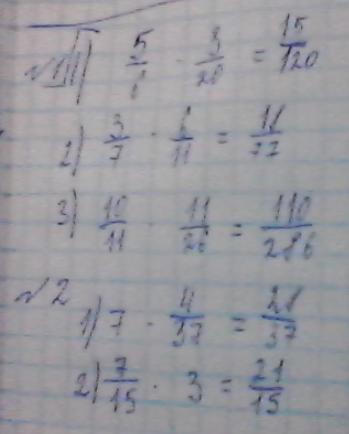 №1 1) 5/6 · 3/20 = 15/120
2) 3/7 · 6/11 = 18/77
3) 10/11 · 11/26 = 110/286
№2
1) 7 · 4/37 = 28/37
2) 7/15 · 3 = 21/15